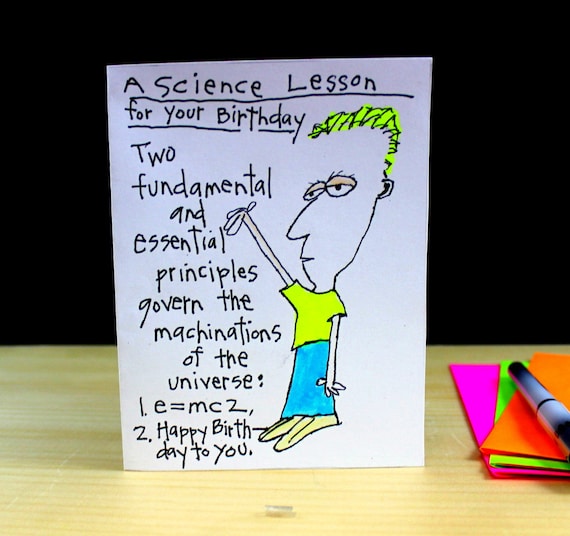 A Science Lesson
for your Birthday
Two
fundamental
and
essential
principles
govern the
machinations
of the
universe:
1. e=mc2,
2. Happy Birth-
day to you.